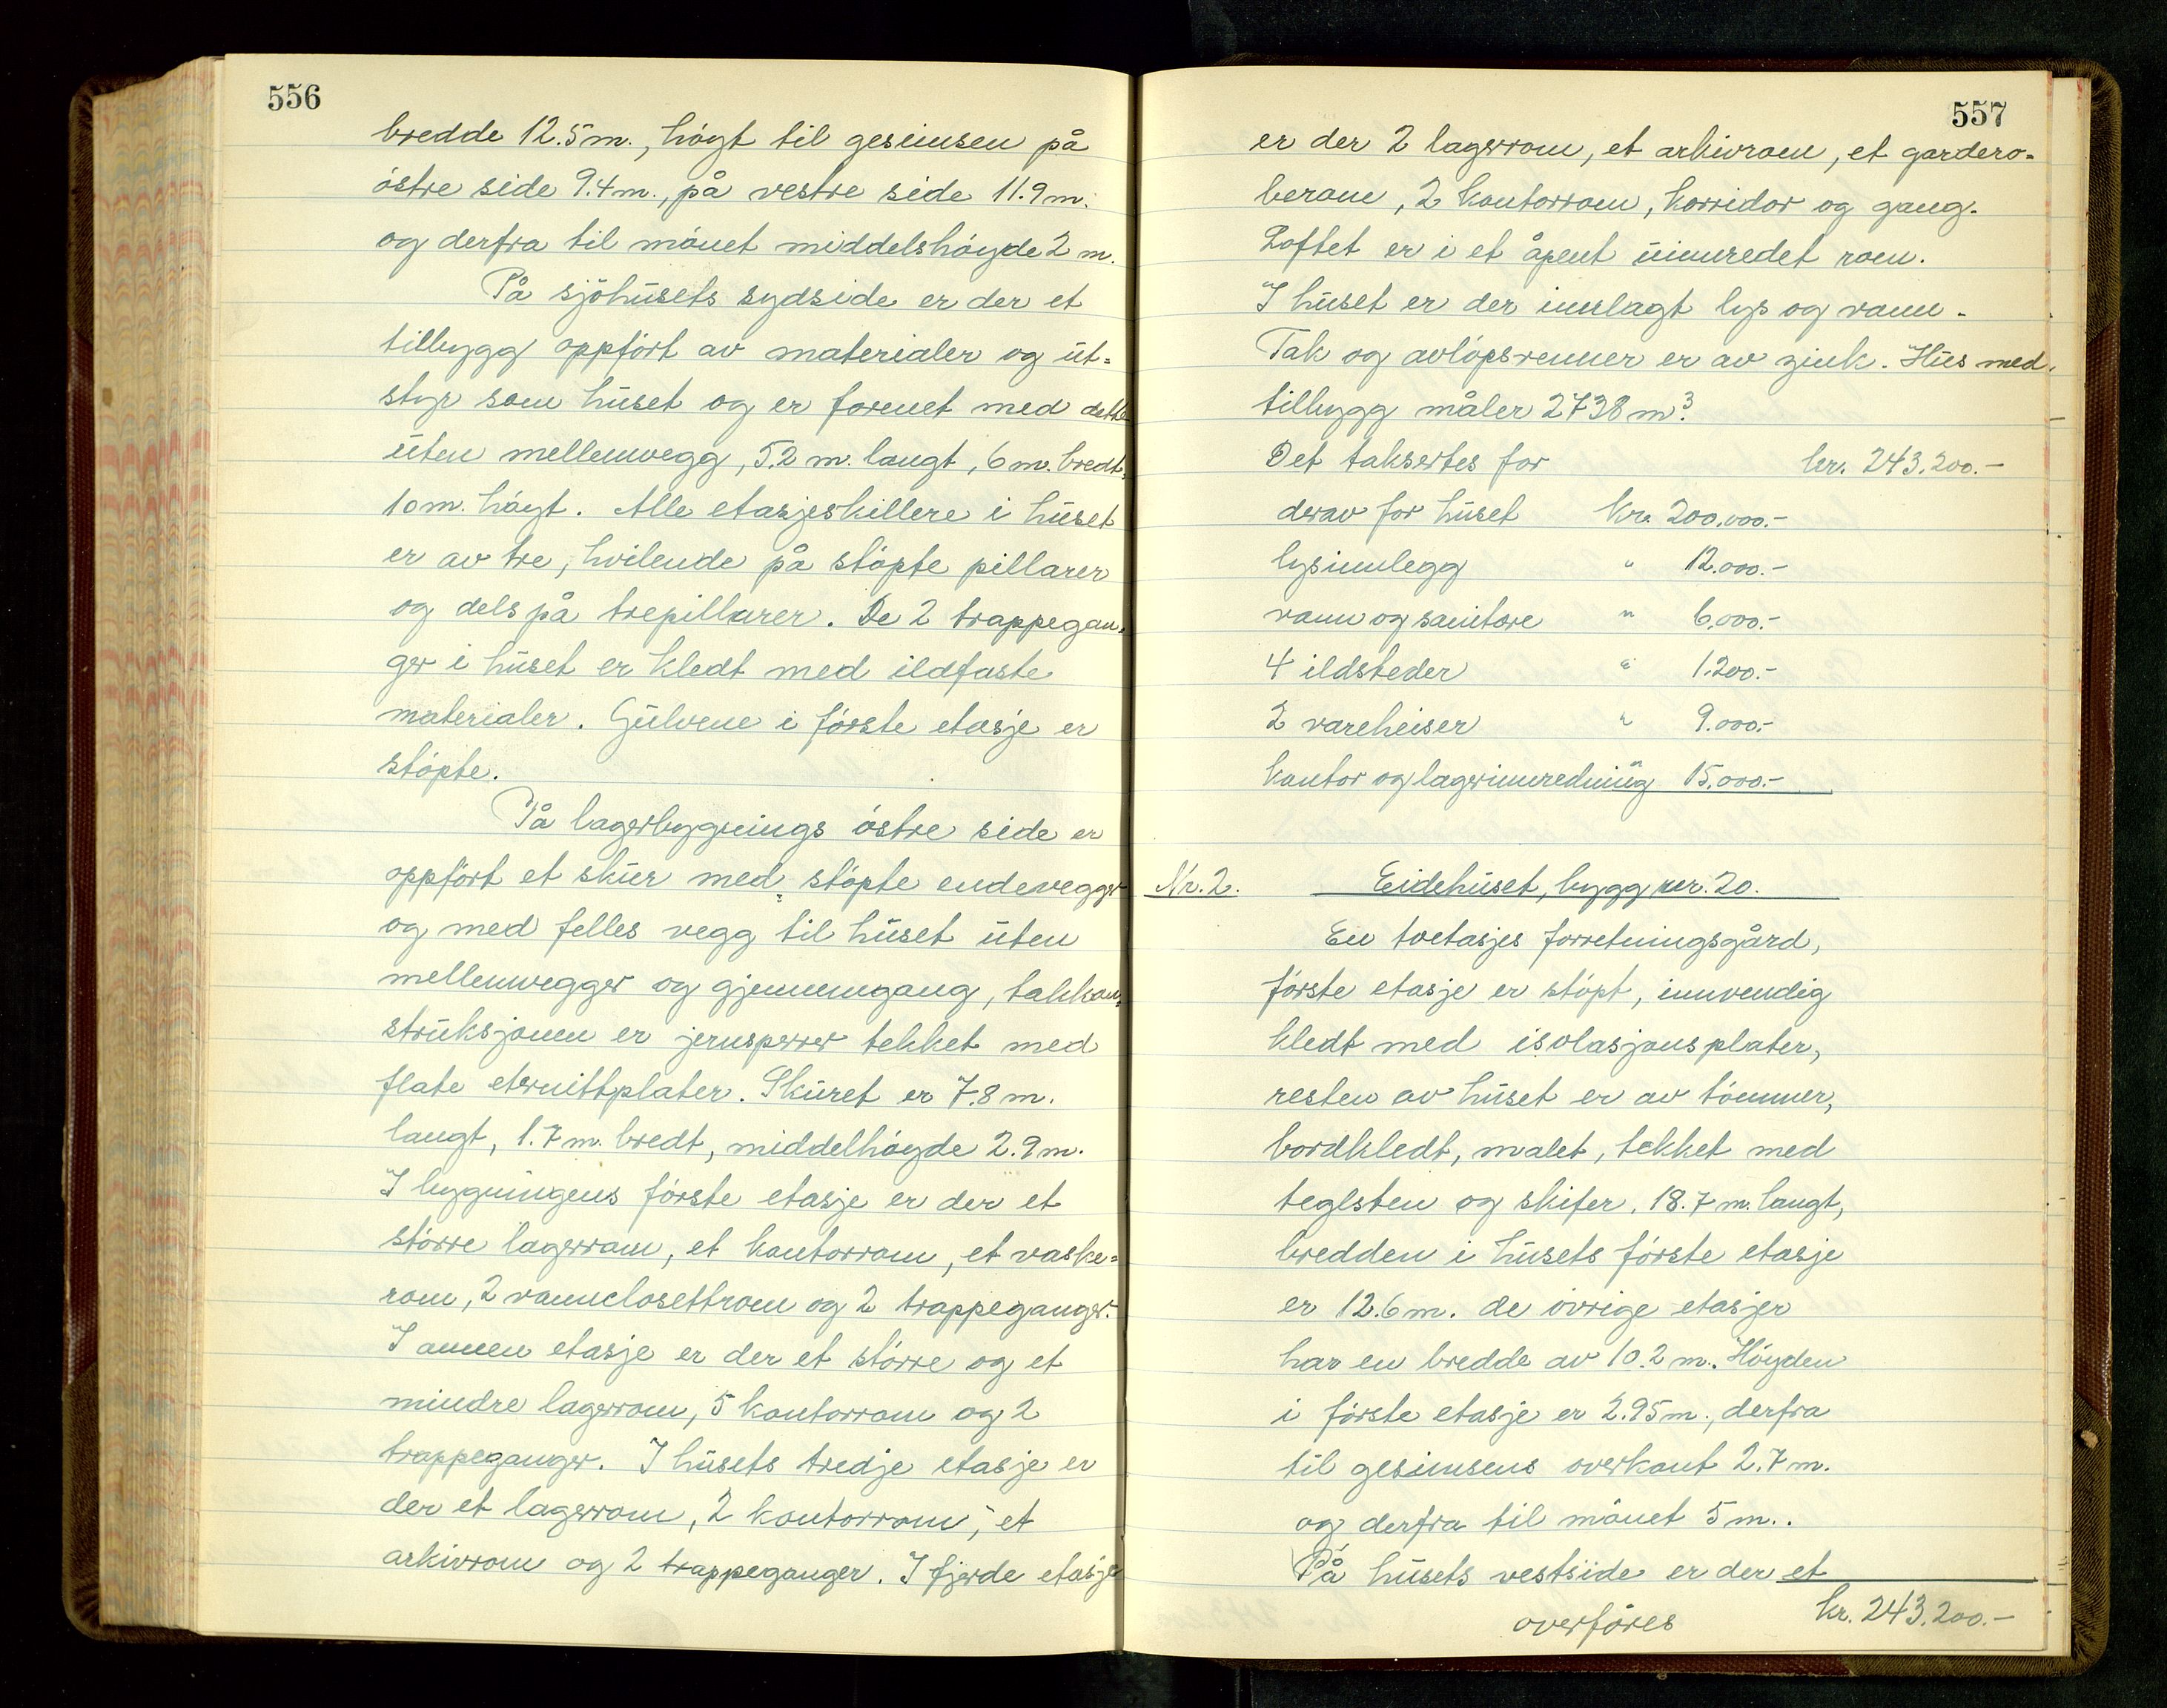 556
bredde 12.5 m., högt til gesimsen på
östre side 9.4 m., på vestre side 11.9 m.
og derfra til mönet middelshöyde 2 m.
På sjöhusets sydside er der et
tilbygg oppfört av materialer og ut=
styr som huset og er forenet med dette
uten mellemvegg, 5.2 m. langt, 6 m. bredt,
10 m. högt. Alle etasjeskillere i huset
er av tre, hvilende på stöpte pillarer
og dels på trepillarer. De 2 trappegan-
ger i huset er kledt med ildfaste
materialer. Gulvene i förste etasje er
stöpte.
På lagerbygnings östre side er
oppfört et skur med stöpte endevegger
og med felles vegg til huset uten
mellemvegger og gjennemgang, takkon-
struksjonen er jernsperrer tekket med
flate eternittplater. Skuret er 7.8 m.
langt, 1.7 m. bredt, middelhöyde 2.9 m.
I bygningens förste etasje er der et
större lagerrom, et kontorrom, et vaske=
rom, 2 vannclosettrom og 2 trappeganger.
I annen etasje er der et större og et
mindre lagerrom, 5 kontorrom og 2
trappeganger. I husets tredje etasje er
der et lagerrom, 2 kontorrom, et
arkivrom og 2 trappeganger. I fjerde etasje
557
er der 2 lagerrom, et arkivrom, et gardero-
berom, 2 kontorrom, korridor og gang.
Loftet er i et åpent uinnredet rom.
I huset er der innlagt lys og vann.
Tak og avlöpsrenner er av zink. Hus med
tilbygg måler 2738 m³.
Det taksertes for kr. 243.200.-
derav for huset kr. 200.000.-
lysinnlegg " 12.000.-
vann og sanitære " 6.000.-
4 ildsteder " 1.200.-
2 vareheiser " 9.000.-
kontor og lagerinnredning " 15.000.-
Nr. 2. Eidehuset, bygg nr. 20.
En toetasjes forretningsgård,
förste etasje er stöpt, innvendig
kledt med isolasjonsplater,
resten av huset er av tömmer,
bordkledt, malet, tekket med
teglsten og skifer, 18.7 m. langt,
bredden i husets förste etasje
er 12.6 m. de övrige etasjer
har en bredde av 10.2 m. Höyden
i förste etasje er 2.95 m., derfra
til gesimsens overkant 2.7 m.
og derfra til mönet 5 m..
På husets vestside er der et
overföres kr. 243.200.-